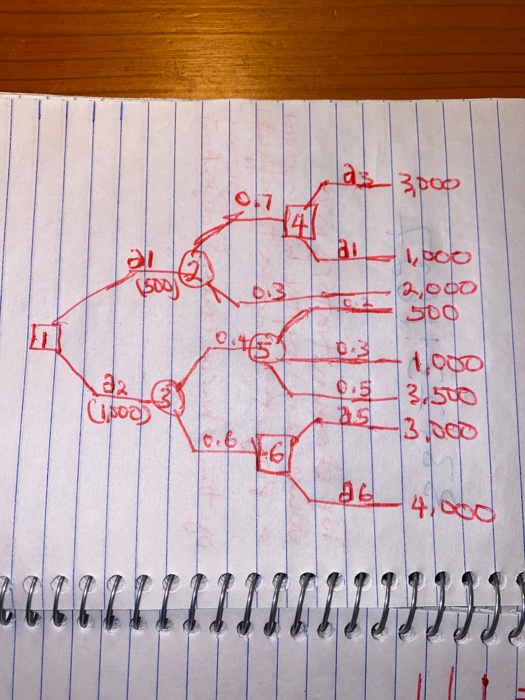 a3 3,000
0.7
4
a1 1,000
a1
(500)
2
0.3 2,000
0.2 500
1
0.4
5
0.3 1,000
0.5 3,500
a2
(1,000)
3
a5 3,000
0.6
6
a6 4,000